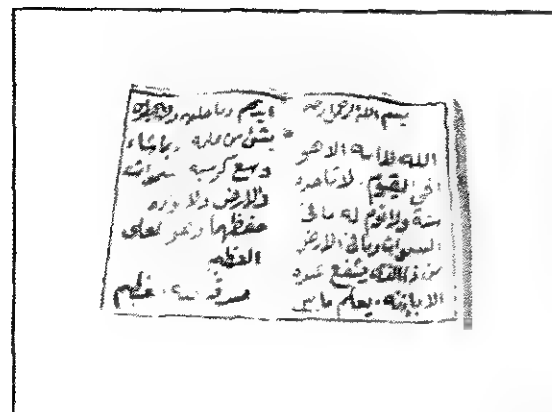 بسم الله الرحمن الرحيم
الله لا اله الا هو
الحي القيوم . لا تاخذه
سنة ولا نوم له ما في
السموات وما في الارض
من ذا الذي يشفع عنده
الا باذنه . يعلم ما بين
ايديهم وما خلفهم ولا
بشئ من علمه . بما شاء
وسع كرسيه السموات
والارض ولا يوده
حفظهما وهو العلي
العظيم
صدق الله العظيم